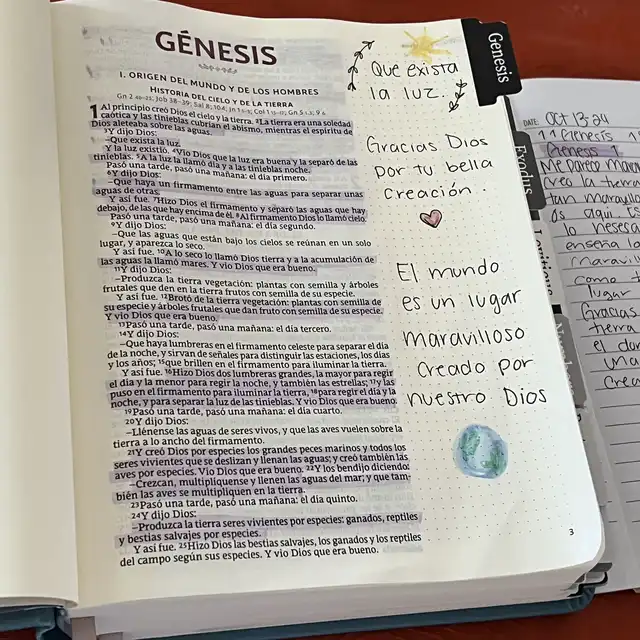 GÉNESIS
I. ORIGEN DEL MUNDO Y DE LOS HOMBRES
HISTORIA DEL CIELO Y DE LA TIERRA
1 Al principio creó Dios el cielo y la tierra. 2La tierra era una soledad
caótica y las tinieblas cubrían el abismo, mientras el espíritu de
Dios aleteaba sobre las aguas.
3Y dijo Dios:
–Que exista la luz.
Y la luz existió. 4Vio Dios que la luz era buena y la separó de las
tinieblas. 5A la luz la llamó día y a las tinieblas noche.
Pasó una tarde, pasó una mañana: el día primero.
6Y dijo Dios:
–Que haya un firmamento entre las aguas para separar unas
aguas de otras.
Y así fue. 7Hizo Dios el firmamento y separó las aguas que hay
debajo, de las que hay encima de él. 8Al firmamento Dios lo llamó cielo.
Pasó una tarde, pasó una mañana: el día segundo.
9Y dijo Dios:
–Que las aguas que están bajo los cielos se reúnan en un solo
lugar, y aparezca lo seco.
Y así fue. 10A lo seco lo llamó Dios tierra y a la acumulación de
las aguas la llamó mares. Y vio Dios que era bueno.
11Y dijo Dios:
–Produzca la tierra vegetación: plantas con semilla y árboles
frutales que den en la tierra frutos con semilla de su especie.
Y así fue. 12Brotó de la tierra vegetación: plantas con semilla de
su especie y árboles frutales que dan fruto con semilla de su especie.
Y vio Dios que era bueno.
13Pasó una tarde, pasó una mañana: el día tercero.
14Y dijo Dios:
–Que haya lumbreras en el firmamento celeste para separar el día
de la noche, y sirvan de señales para distinguir las estaciones, los días
y los años; 15que brillen en el firmamento para iluminar la tierra.
Y así fue. 16Hizo Dios dos lumbreras grandes, la mayor para regir
el día y la menor para regir la noche, y también las estrellas; 17y las
puso en el firmamento para iluminar la tierra, 18para regir el día y la
noche, y para separar la luz de las tinieblas. Y vio Dios que era bueno.
19Pasó una tarde, pasó una mañana: el día cuarto.
20Y dijo Dios:
–Llénense las aguas de seres vivos, y que las aves vuelen sobre la
tierra a lo ancho del firmamento.
21Y creó Dios por especies los grandes peces marinos y todos los
seres vivientes que se deslizan y llenan las aguas; y creó también las
aves por especies. Vio Dios que era bueno. 22Y los bendijo diciendo:
–Crezcan, multiplíquense y llenen las aguas del mar; y que tam-
bién las aves se multipliquen en la tierra.
23Pasó una tarde, pasó una mañana: el día quinto.
24Y dijo Dios:
–Produzca la tierra seres vivientes por especies: ganados, reptiles
y bestias salvajes por especies.
Y así fue. 25Hizo Dios las bestias salvajes, los ganados y los reptiles
del campo según sus especies. Y vio Dios que era bueno.
Que exista
la luz.
Gracias Dios
por tu bella
creación.
El mundo
es un lugar
maravilloso
creado por
nuestro Dios
3
Genesis
Exodus
DATE: Oct 13, 24
Genesis
Genesis 1
Me parece
creo la tierra
tan
aquí
lo
enseña
como
lugar
Gracias
tierra
el
una